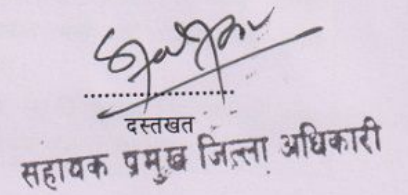 ....................
दस्तखत
सहायक प्रमुख जिल्ला अधिकारी